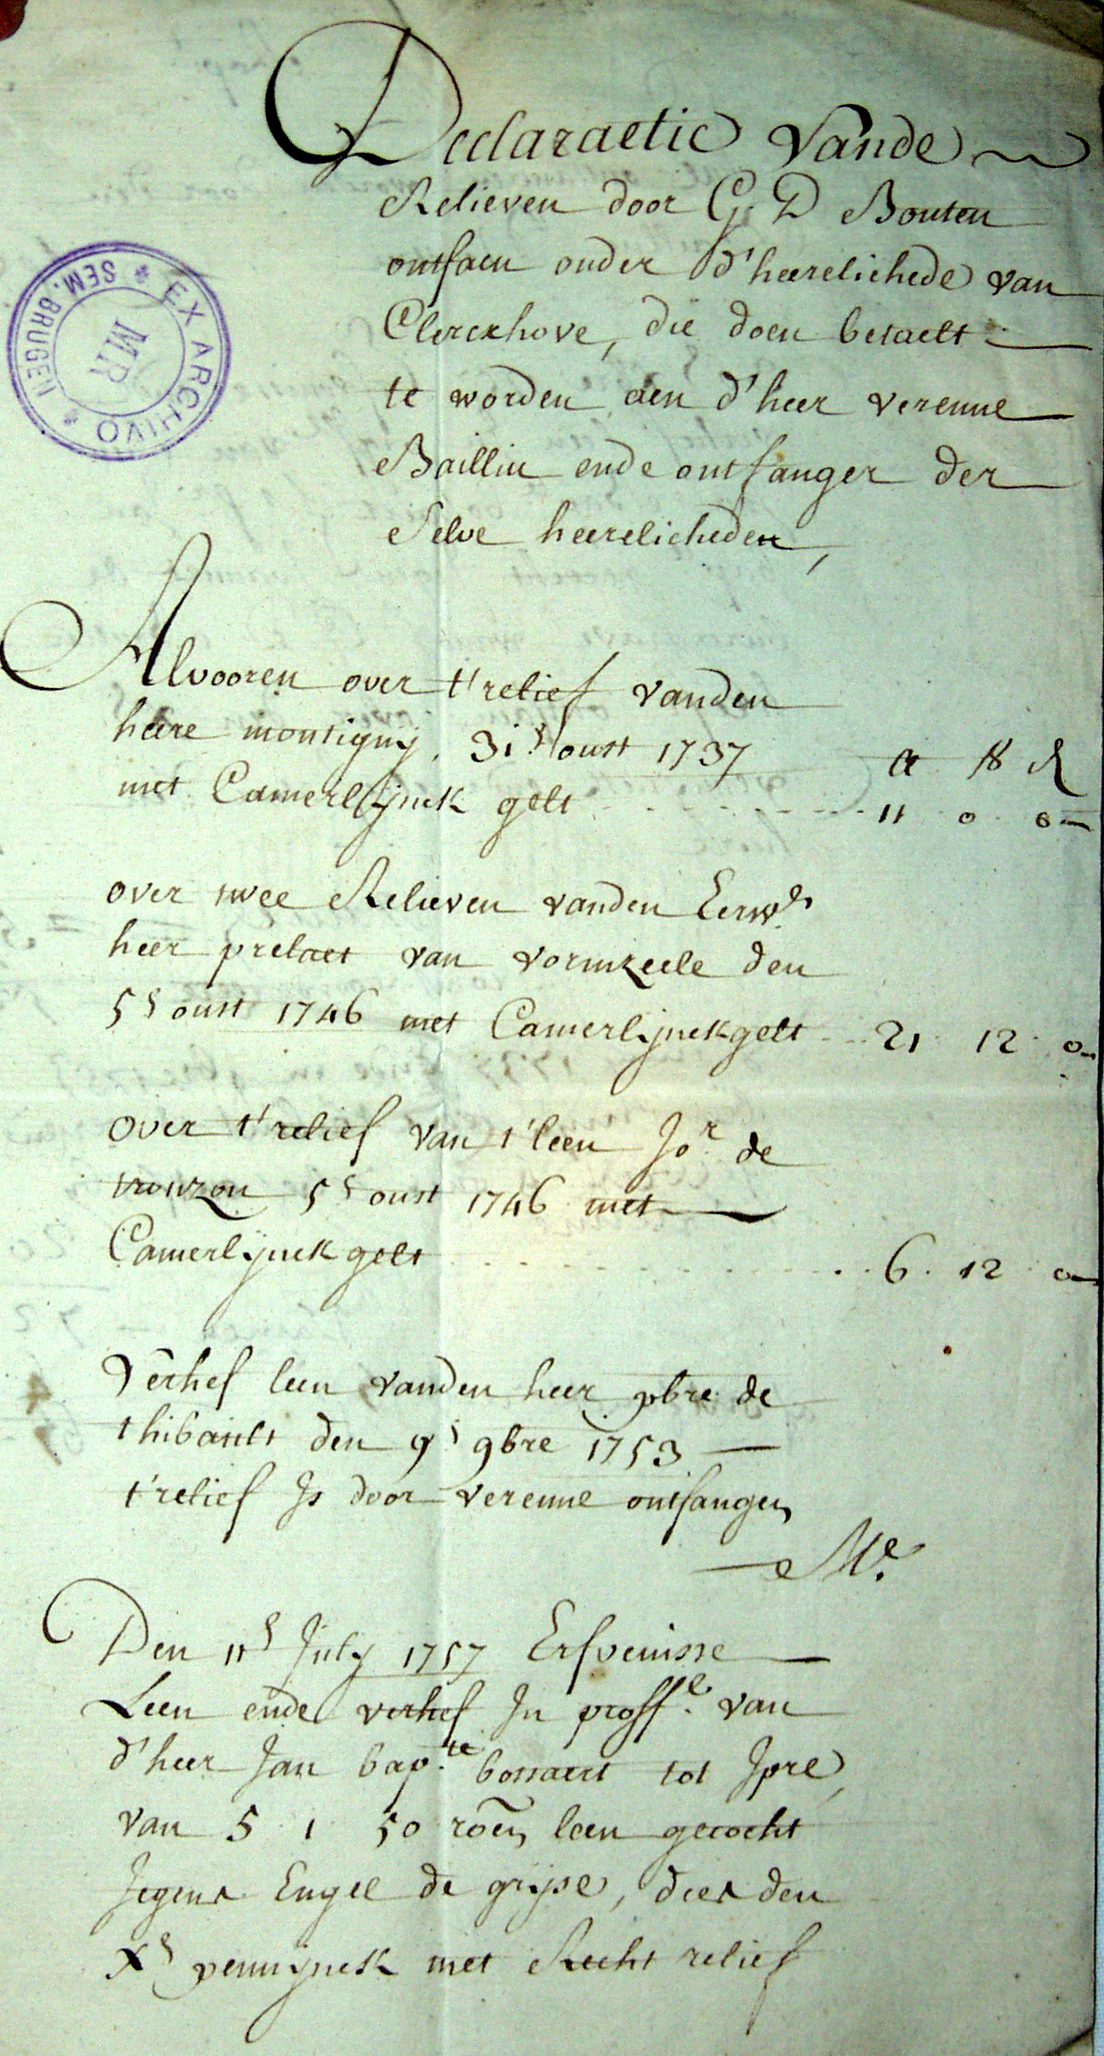 Declaraetie vande
Relieven door G: D Bouten
ontfaen onder d'heerelichede van
Clerckhove, die doen betaelt
te worden aen d'heer verenne
Bailliu ende ontfanger der
Selve heerelicheden,
EX ARCHIVO
SEM. BRUGEN
MR
Alvooren over t'relief vanden
heere montigny. 31s oust 1737
met Camerlijnck gelt 11 0 0
over twee Relieven vanden Eerwe
heer prelaet van vormzeele den
5s oust 1746 met Camerlijnckgelt 21 12 0
over t'relief van t'leen Jor de
5s oust 1746 met
Camerlijnckgelt 6. 12 0
Verhef leen vanden heer pbre de
thibault den 9s 9bre 1753
t'relief Is door verenne ontfangen
Me.
Den 11s July 1757 Erfvenisse
Leen ende verhef In proffe. van
d'heer Jan bap.te bossaert tot Jpre
van 5 1 50 roen leen gecocht
Jegens Engel de grijse, dies den
Xs pennijnck met Recht relief